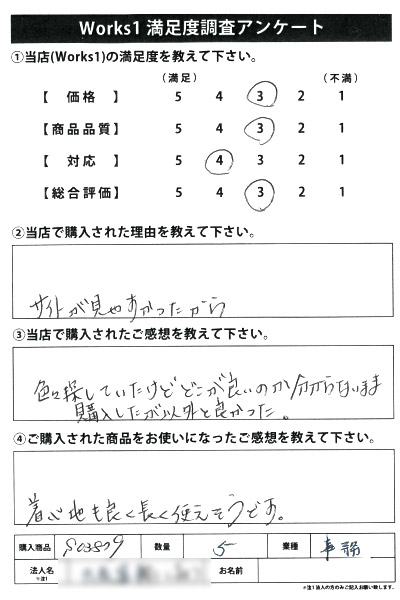 Works1 満足度調査アンケート
①当店(Works1)の満足度を教えて下さい。
(満足) (不満)
【 価格 】 5 4 3 2 1
【商品品質】 5 4 3 2 1
【 対応 】 5 4 3 2 1
【総合評価】 5 4 3 2 1
②当店で購入された理由を教えて下さい。
サイトが見やすかったから
③当店で購入されたご感想を教えて下さい。
色々探していたけどどこが良いのか分からないまま
購入したが以外と良かった。
④ご購入された商品をお使いになったご感想を教えて下さい。
着心地も良く長く使えそうです。
購入商品 数量 5 業種 事務
法人名 お名前
※注1
※注1 法人の方のみご記入お願い致します。